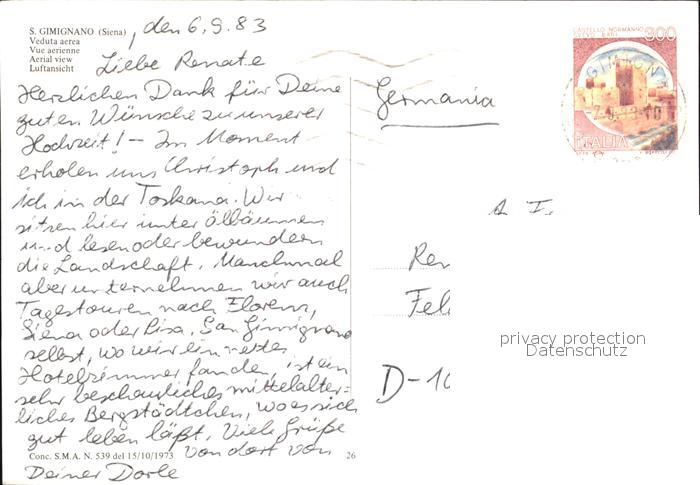 S. GIMIGNANO (Siena)
Veduta aerea
Vue aerienne
Aerial view
Luftansicht
, den 6.9.83
Liebe Renate
Herzlichen Dank für Deine
guten Wünsche zu unserer
Hochzeit! – Im Moment
erholen uns Christoph und
ich in der Toskana. Wir
sitzen hier unter Ölbäumen
und lesen oder bewundern
die Landschaft. Manchmal
aber unternehmen wir auch
Tagestouren nach Florenz,
Siena oder Pisa. San Gimignano
selbst, wo wir ein nettes
Hotelzimmer fanden, ist ein
sehr beschauliches mittelalter=
liches Bergstädtchen, wo es sich
gut leben läßt. Viele Grüße
von dort von
Deiner Dorle
Conc. S.M.A. N. 539 del 15/10/1973
26
Germania
CASTELLO NORMANNO
300
ITALIA
Ren
Fel
D-10
privacy protection
Datenschutz